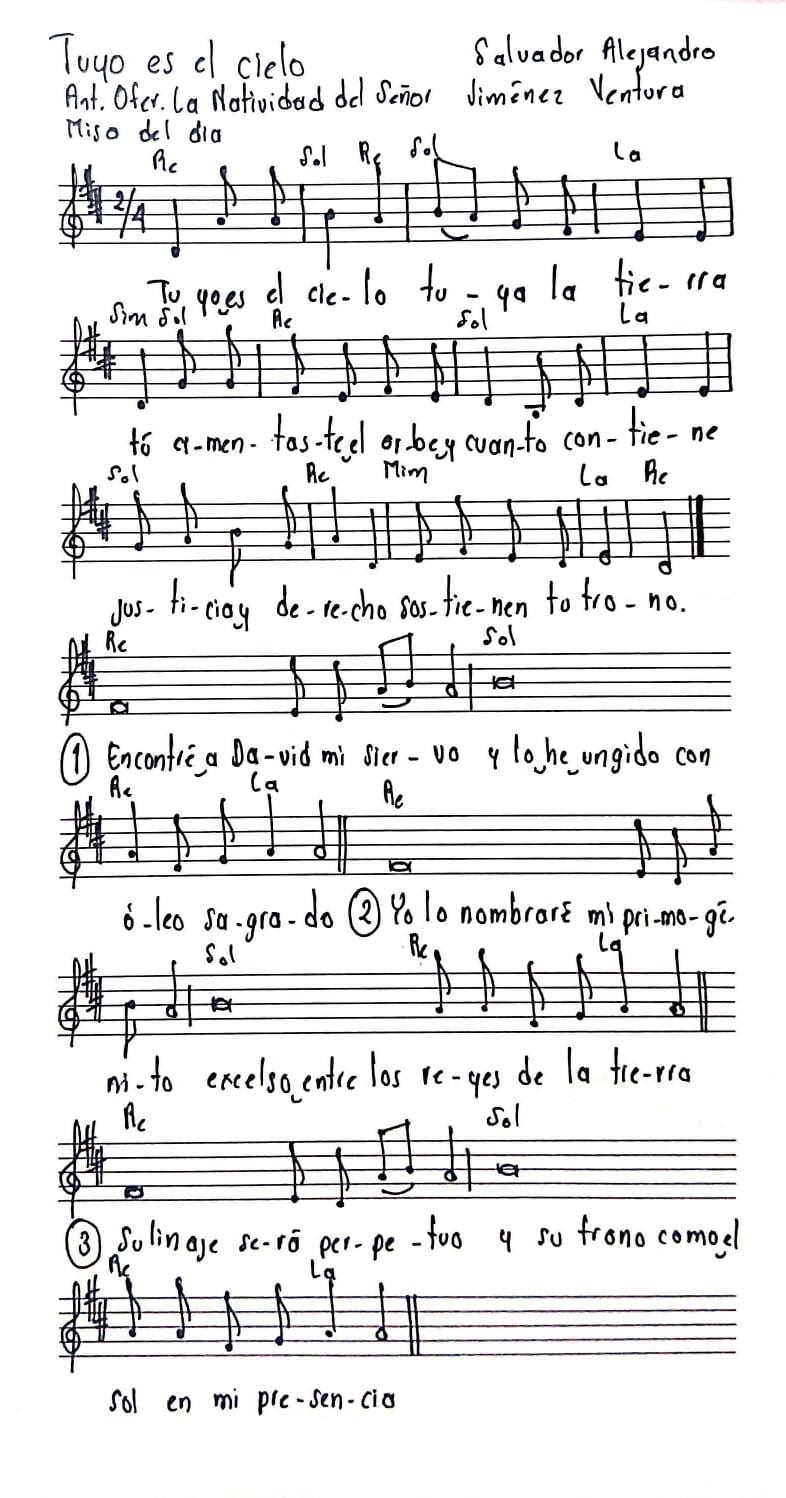 Tuyo es el cielo Salvador Alejandro
Ant. Ofer. La Natividad del Señor Jiménez Ventura
Misa del dia
Re Sol Re Sol La
2/4
Tu yo, es el cie-lo tu - ya la tie-rra
Sim Sol Re Sol La
tú ci-men-tas-te, el or-be, y cuan-to con-tie-ne
Sol Re Mim La Re
Jus-ti-cia, y de-re-cho sos-tie-nen tu tro-no.
Re Sol
① Encontré, a Da-vid mi sier - vo y lo, he, ungido con
Re La Re
ó-leo sa-gra-do ② Yo lo nombraré mi pri-mo-gé-
Sol Re La
ni-to excelso, entre los re-yes de la tie-rra
Re Sol
③ Su linaje se-rá per-pe-tuo y su trono como, el
Re La
sol en mi pre-sen-cia